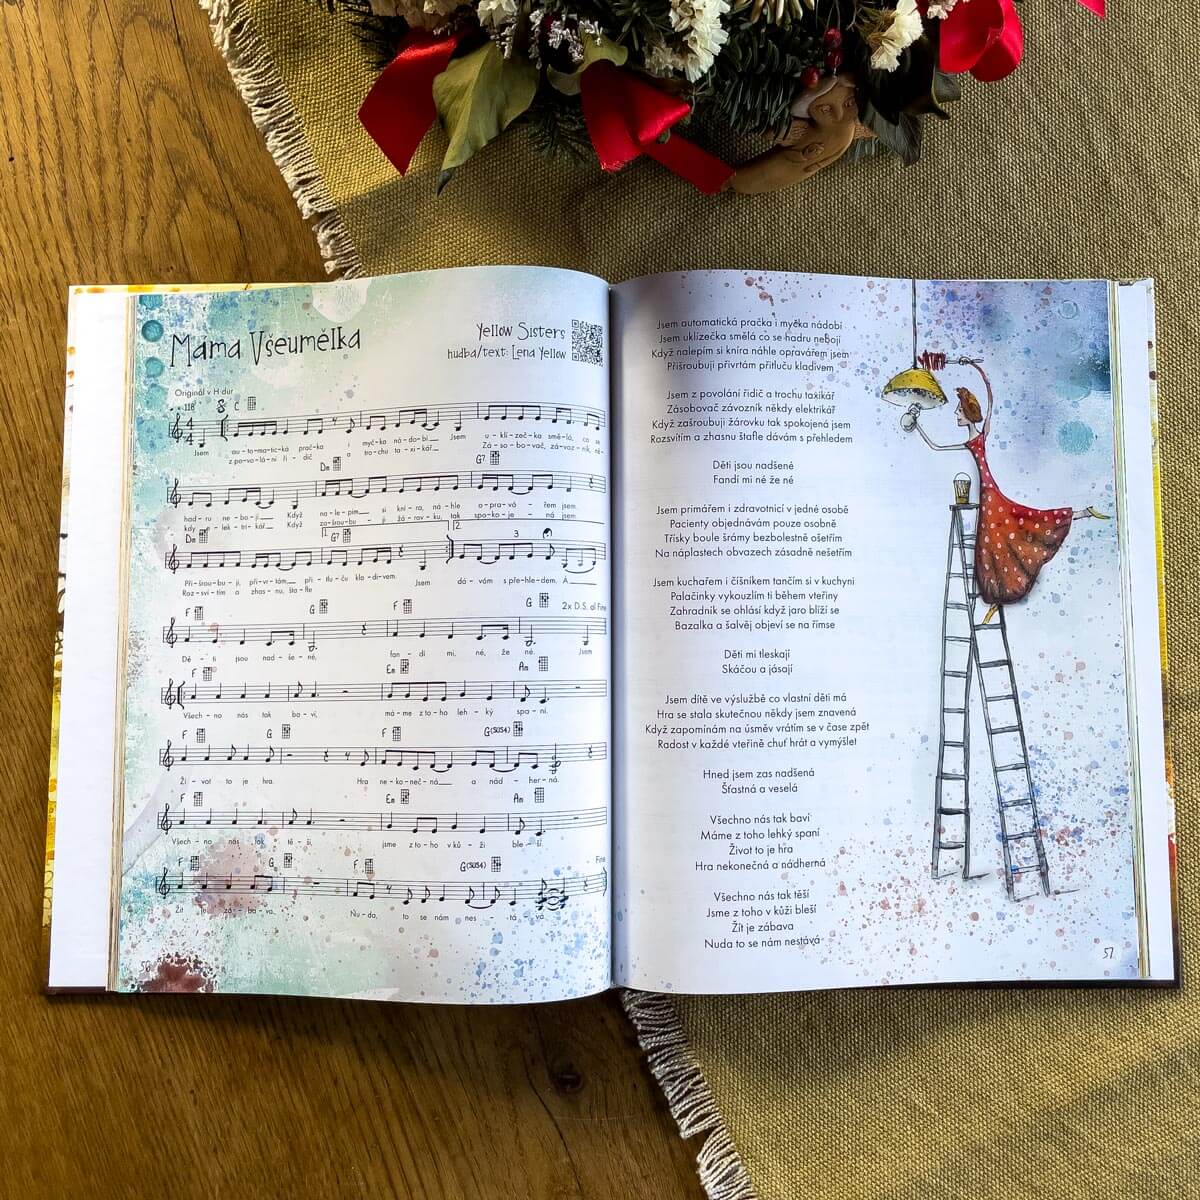 Mama Všeumělka
Yellow Sisters
hudba/text: Lena Yellow
Originál v H dur
118 C
Jsem au-to-ma-tic-ká prač-ka i myč-ka ná-do-bí Jsem u-kli-zeč-ka smě-lá, co se
z po-vo-lá-ní ři-dič a tro-chu ta-xi-kář Zá-so-bo-vač, zá-voz-ník, ně-
Dm G7
had-ru ne-bo-jí Když na-le-pím si kní-ra, ná-hle o-pra-vá-řem jsem.
kdy e-lek-tri-kář Když za-šrou-bu-ji žá-rov-ku, tak spo-ko-je-ná jsem
Dm 1. G7 2. 3
Při-šrou-bu-ji, při-vr-tám, při-tlu-ču kla-di-vem. Jsem dá-vám s pře-hle-dem. A
Roz-sví-tím a zhas-nu, šta-fle
F G F G 2x D.S. al Fine
Dě-ti jsou nad-še-né, fan-dí mi, né, že né. Jsem
F Em Am
Všech-no nás tak ba-ví, má-me z to-ho leh-ký spa-ní.
F G F G(SUS4)
Ži-vot to je hra. Hra ne-ko-neč-ná a nád-her-ná.
F Em Am
Všech-no nás tak tě-ší, jsme z to-ho v ků-ži ble-ší.
F G F G(SUS4) Fine
Žít je zá-ba-va. Nu-da, to se nám nes-tá-vá.
56
Jsem automatická pračka i myčka nádobí
Jsem uklízečka smělá co se hadru nebojí
Když nalepím si kníra náhle opravářem jsem
Přišroubuji přivrtám přitluču kladivem
Jsem z povolání řidič a trochu taxikář
Zásobovač závozník někdy elektrikář
Když zašroubuji žárovku tak spokojená jsem
Rozsvítím a zhasnu štafle dávám s přehledem
Děti jsou nadšené
Fandí mi né že né
Jsem primářem i zdravotnicí v jedné osobě
Pacienty objednávám pouze osobně
Třísky boule šrámy bezbolestně ošetřím
Na náplastech obvazech zásadně nešetřím
Jsem kuchařem i číšníkem tančím si v kuchyni
Palačinky vykouzlím ti během vteřiny
Zahradník se ohlásí když jaro blíží se
Bazalka a šalvěj objeví se na římse
Děti mi tleskají
Skáčou a jásají
Jsem dítě ve výslužbě co vlastní děti má
Hra se stala skutečnou někdy jsem znavená
Když zapomínám na úsměv vrátím se v čase zpět
Radost v každé vteřině chuť hrát a vymýšlet
Hned jsem zas nadšená
Šťastná a veselá
Všechno nás tak baví
Máme z toho lehký spaní
Život to je hra
Hra nekonečná a nádherná
Všechno nás tak těší
Jsme z toho v kůži bleší
Žít je zábava
Nuda to se nám nestává
57